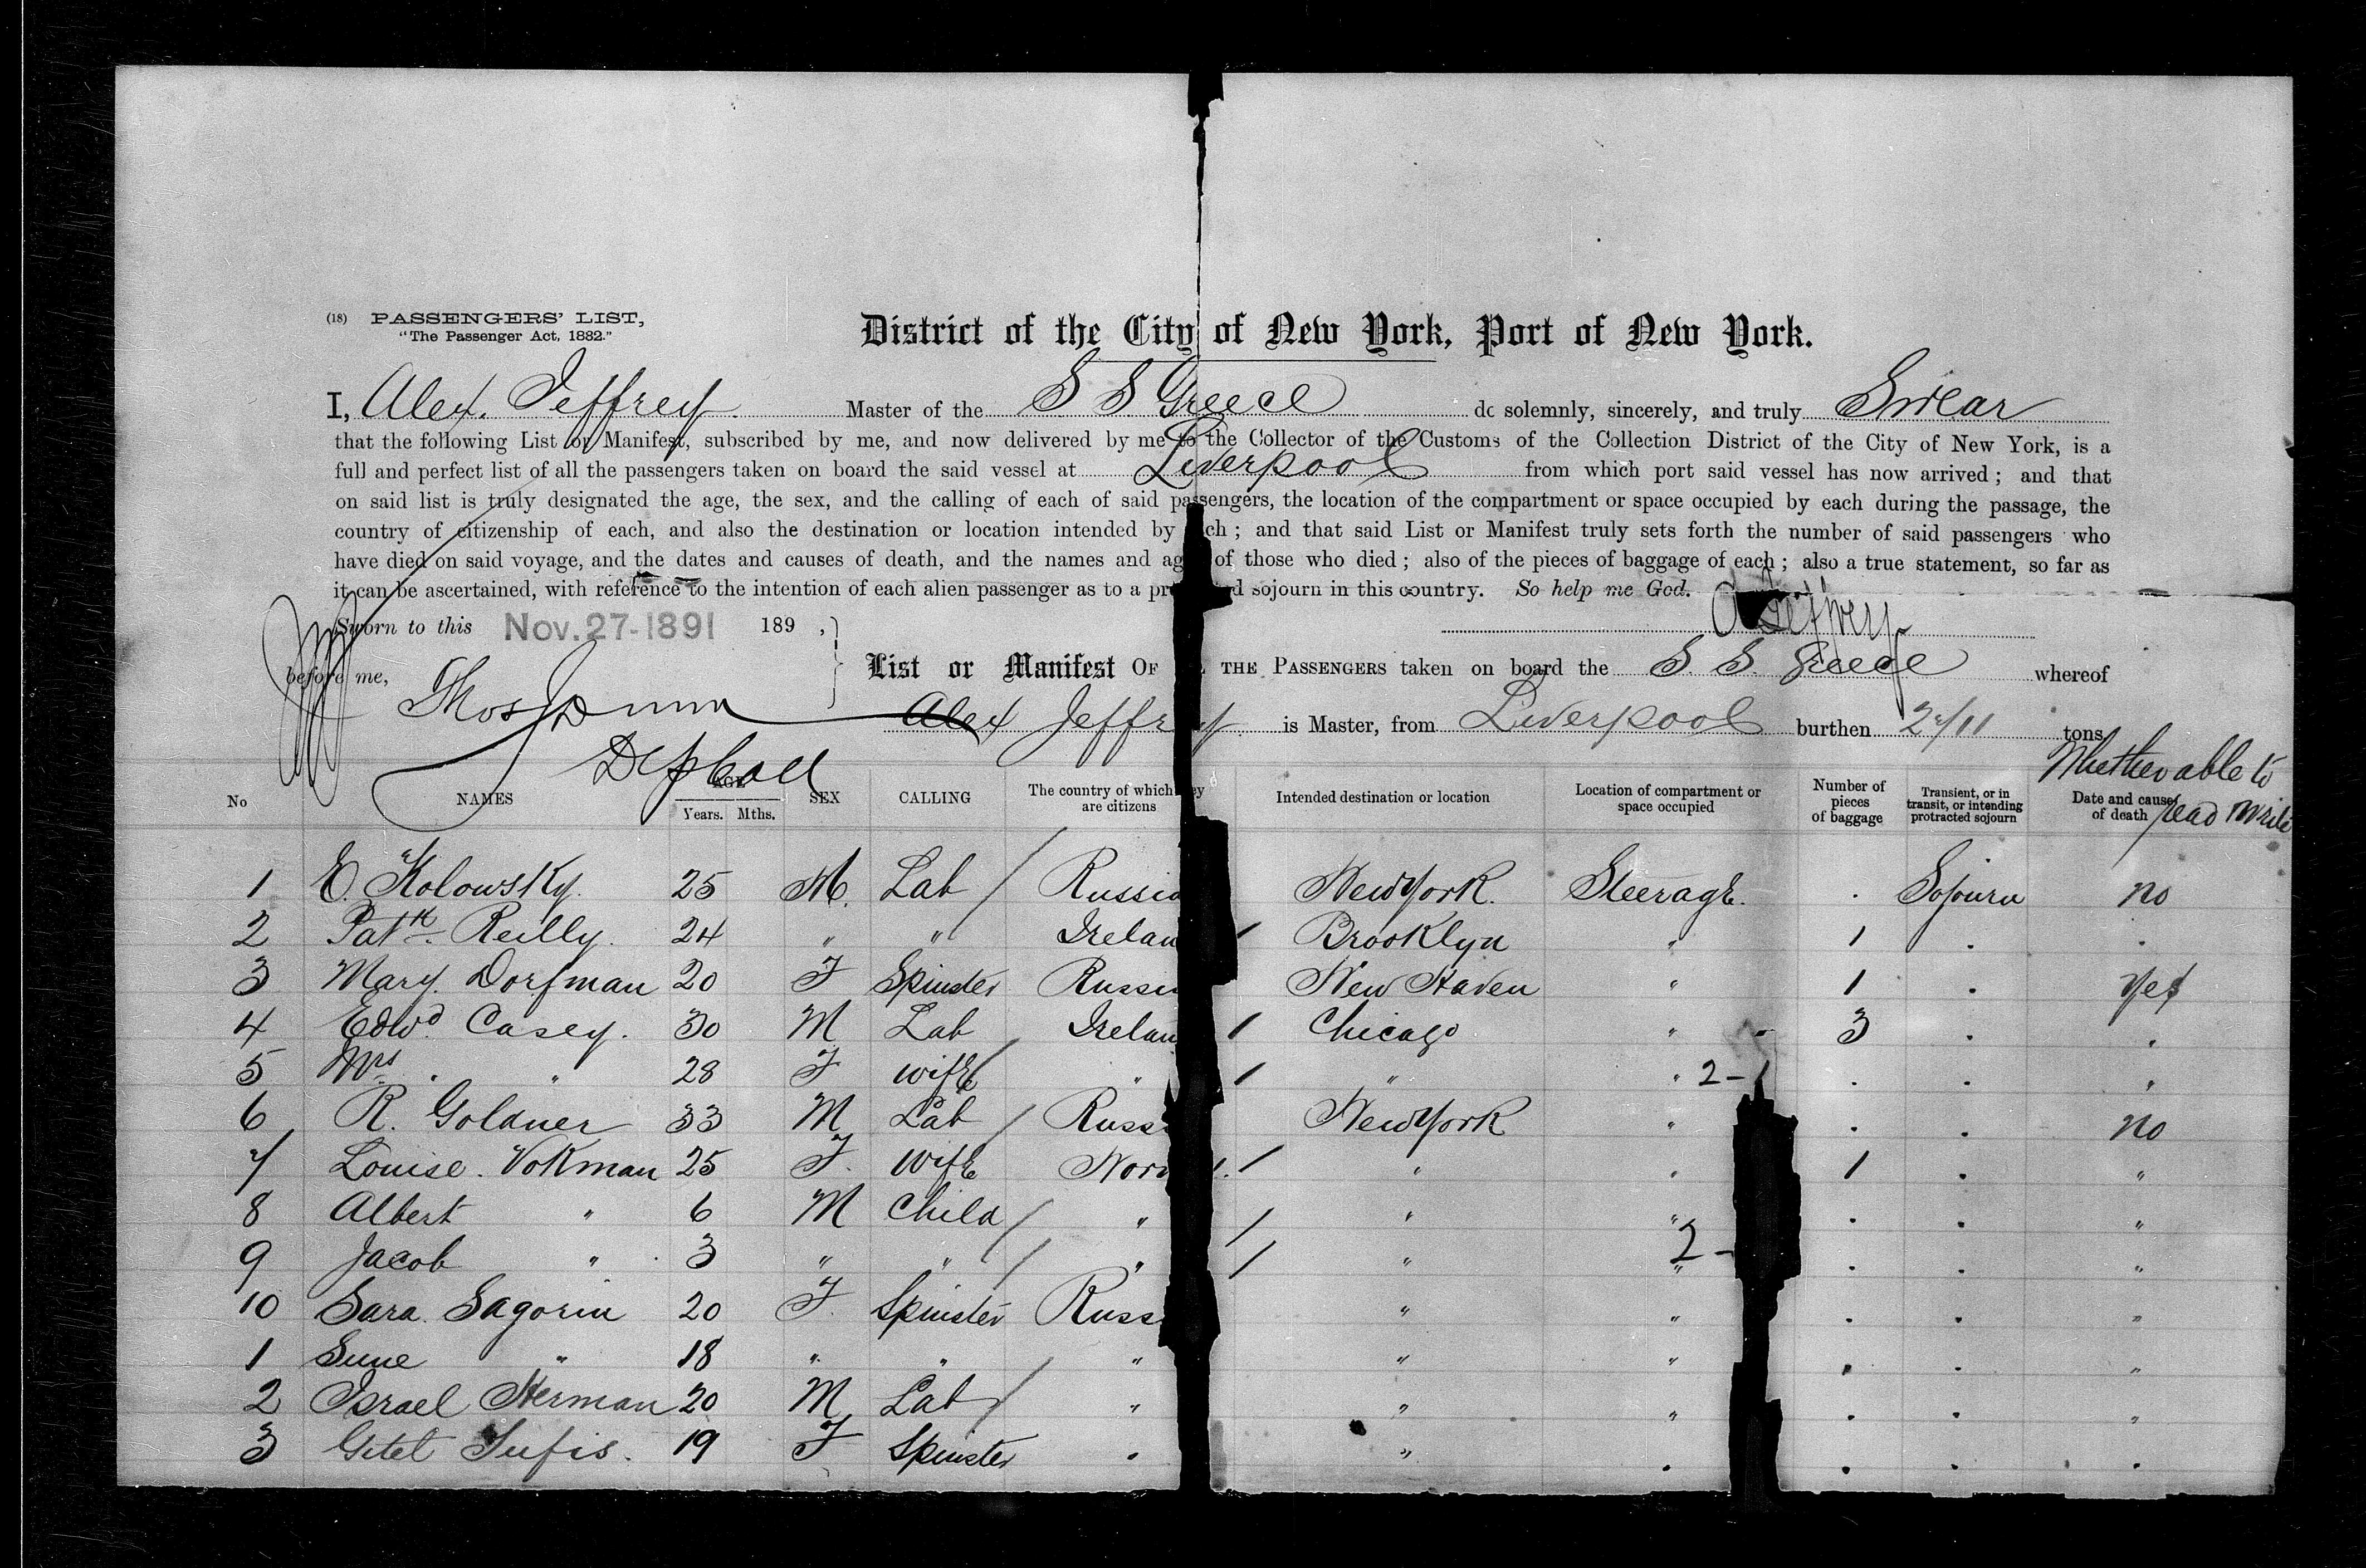 (18) PASSENGERS' LIST,
"The Passenger Act, 1882."
District of the City of New York, Port of New York.
I, Alex. Jeffrey Master of the S S Greece do solemnly, sincerely, and truly Swear
that the following List or Manifest, subscribed by me, and now delivered by me to the Collector of the Customs of the Collection District of the City of New York, is a
full and perfect list of all the passengers taken on board the said vessel at Liverpool from which port said vessel has now arrived; and that
on said list is truly designated the age, the sex, and the calling of each of said passengers, the location of the compartment or space occupied by each during the passage, the
country of citizenship of each, and also the destination or location intended by ch; and that said List or Manifest truly sets forth the number of said passengers who
have died on said voyage, and the dates and causes of death, and the names and ag of those who died; also of the pieces of baggage of each; also a true statement, so far as
it can be ascertained, with reference to the intention of each alien passenger as to a pr d sojourn in this country. So help me God.
A Jeffrey
Sworn to this Nov. 27-1891 189 ,
before me, Thos Dunn
Dep Coll
List or Manifest OF THE PASSENGERS taken on board the S. S. Greece whereof
Alex Jeffrey is Master, from Liverpool burthen tons
Whether able to read write
No NAMES AGE Years. Mths. SEX CALLING The country of which ey are citizens Intended destination or location Location of compartment or space occupied Number of pieces of baggage Transient, or in transit, or intending protracted sojourn Date and cause of death
1 E. Kolowsky. 25 M. Lab / Russia New York. Steerage. . Sojourn no
2 Patk Reilly. 24 " " Irelan / Brooklyn " 1 . .
3 Mary Dorfman 20 F Spinster Russi New Haven " 1 . yes
4 Edwd. Casey. 30 M Lab Irelan / Chicago " 3 . .
5 Mrs " " 28 F wife / " / " " 2 - 1 . . "
6 R. Goldner 33 M Lab / Russ New York " . . no
7 Louise. Vokman 25 F. Wife Norw / " " 1 . "
8 Albert " 6 M Child / " / " " . . "
9 Jacob " 3 " " / " / " 2 - " . . "
10 Sara Sagorin 20 F. Spinster Russ " " . . "
1 Sune " 18 " " " " " . . "
2 Israel Herman 20 M Lab / " " " . . "
3 Gitel Sufis. 19 F Spinster . " . . . .